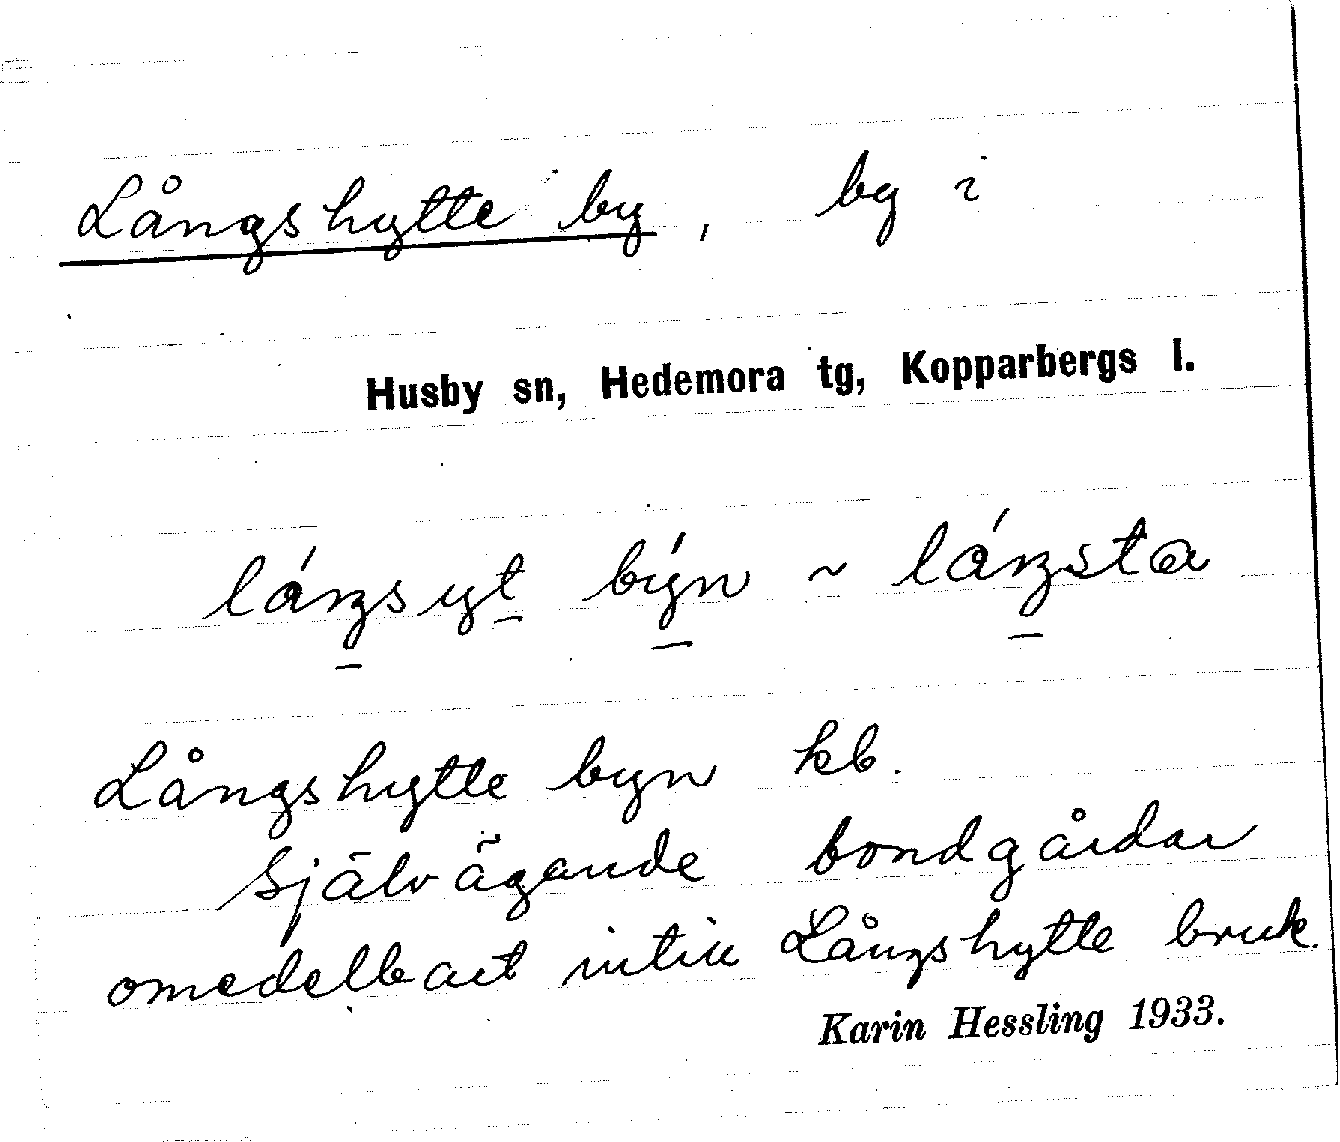 Långshytte by, by i
Husby sn, Hedemora tg, Kopparbergs l.
býn ~
Långshytte byn kb.
självägande bondgårdar
omedelbart intill Långshytte bruk.
Karin Hessling 1933.